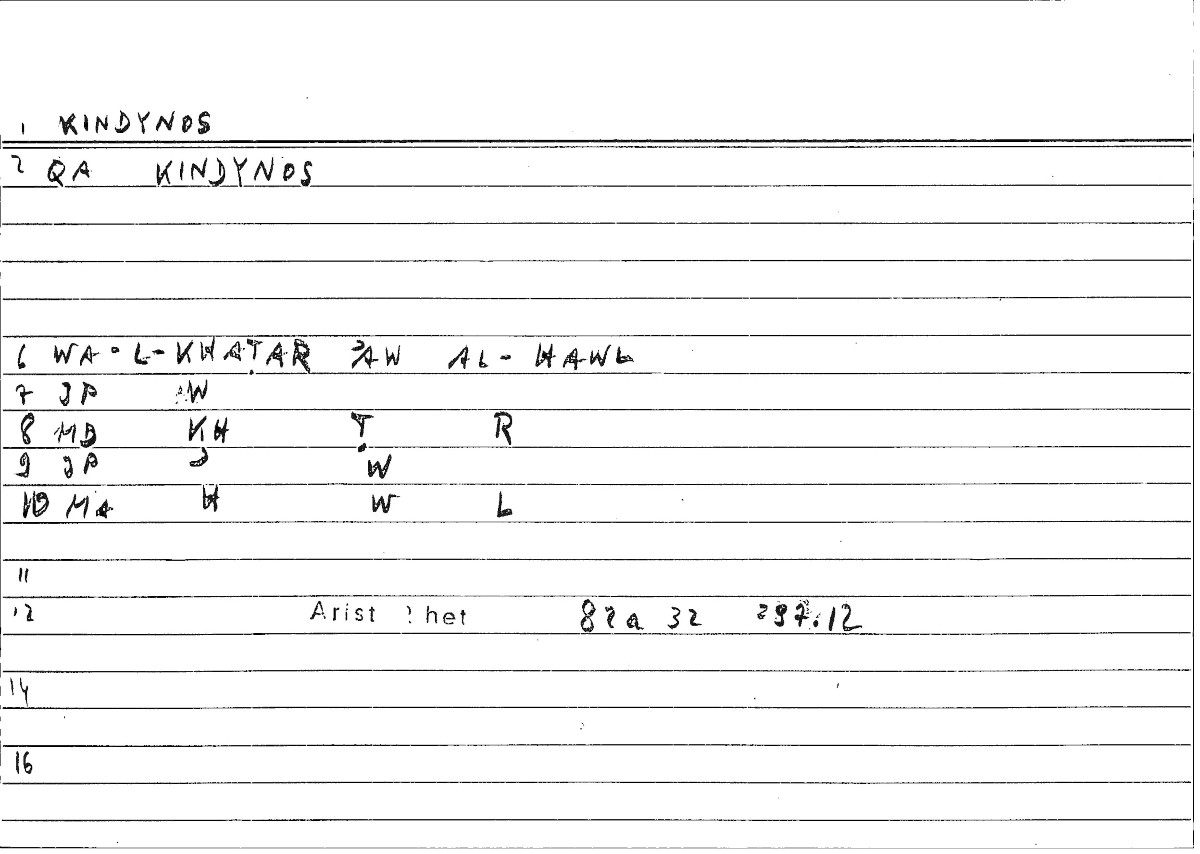 1 KINDYNOS
2 QA KINDYNOS
6 WA-L-KHAṬAR ʾAW AL-HAWL
7 JP ʾW
8 MB KH Ṭ R
9 JP ʾ W
10 MA H W L
11
12 Arist Rhet 82a 32 297.12
14
16